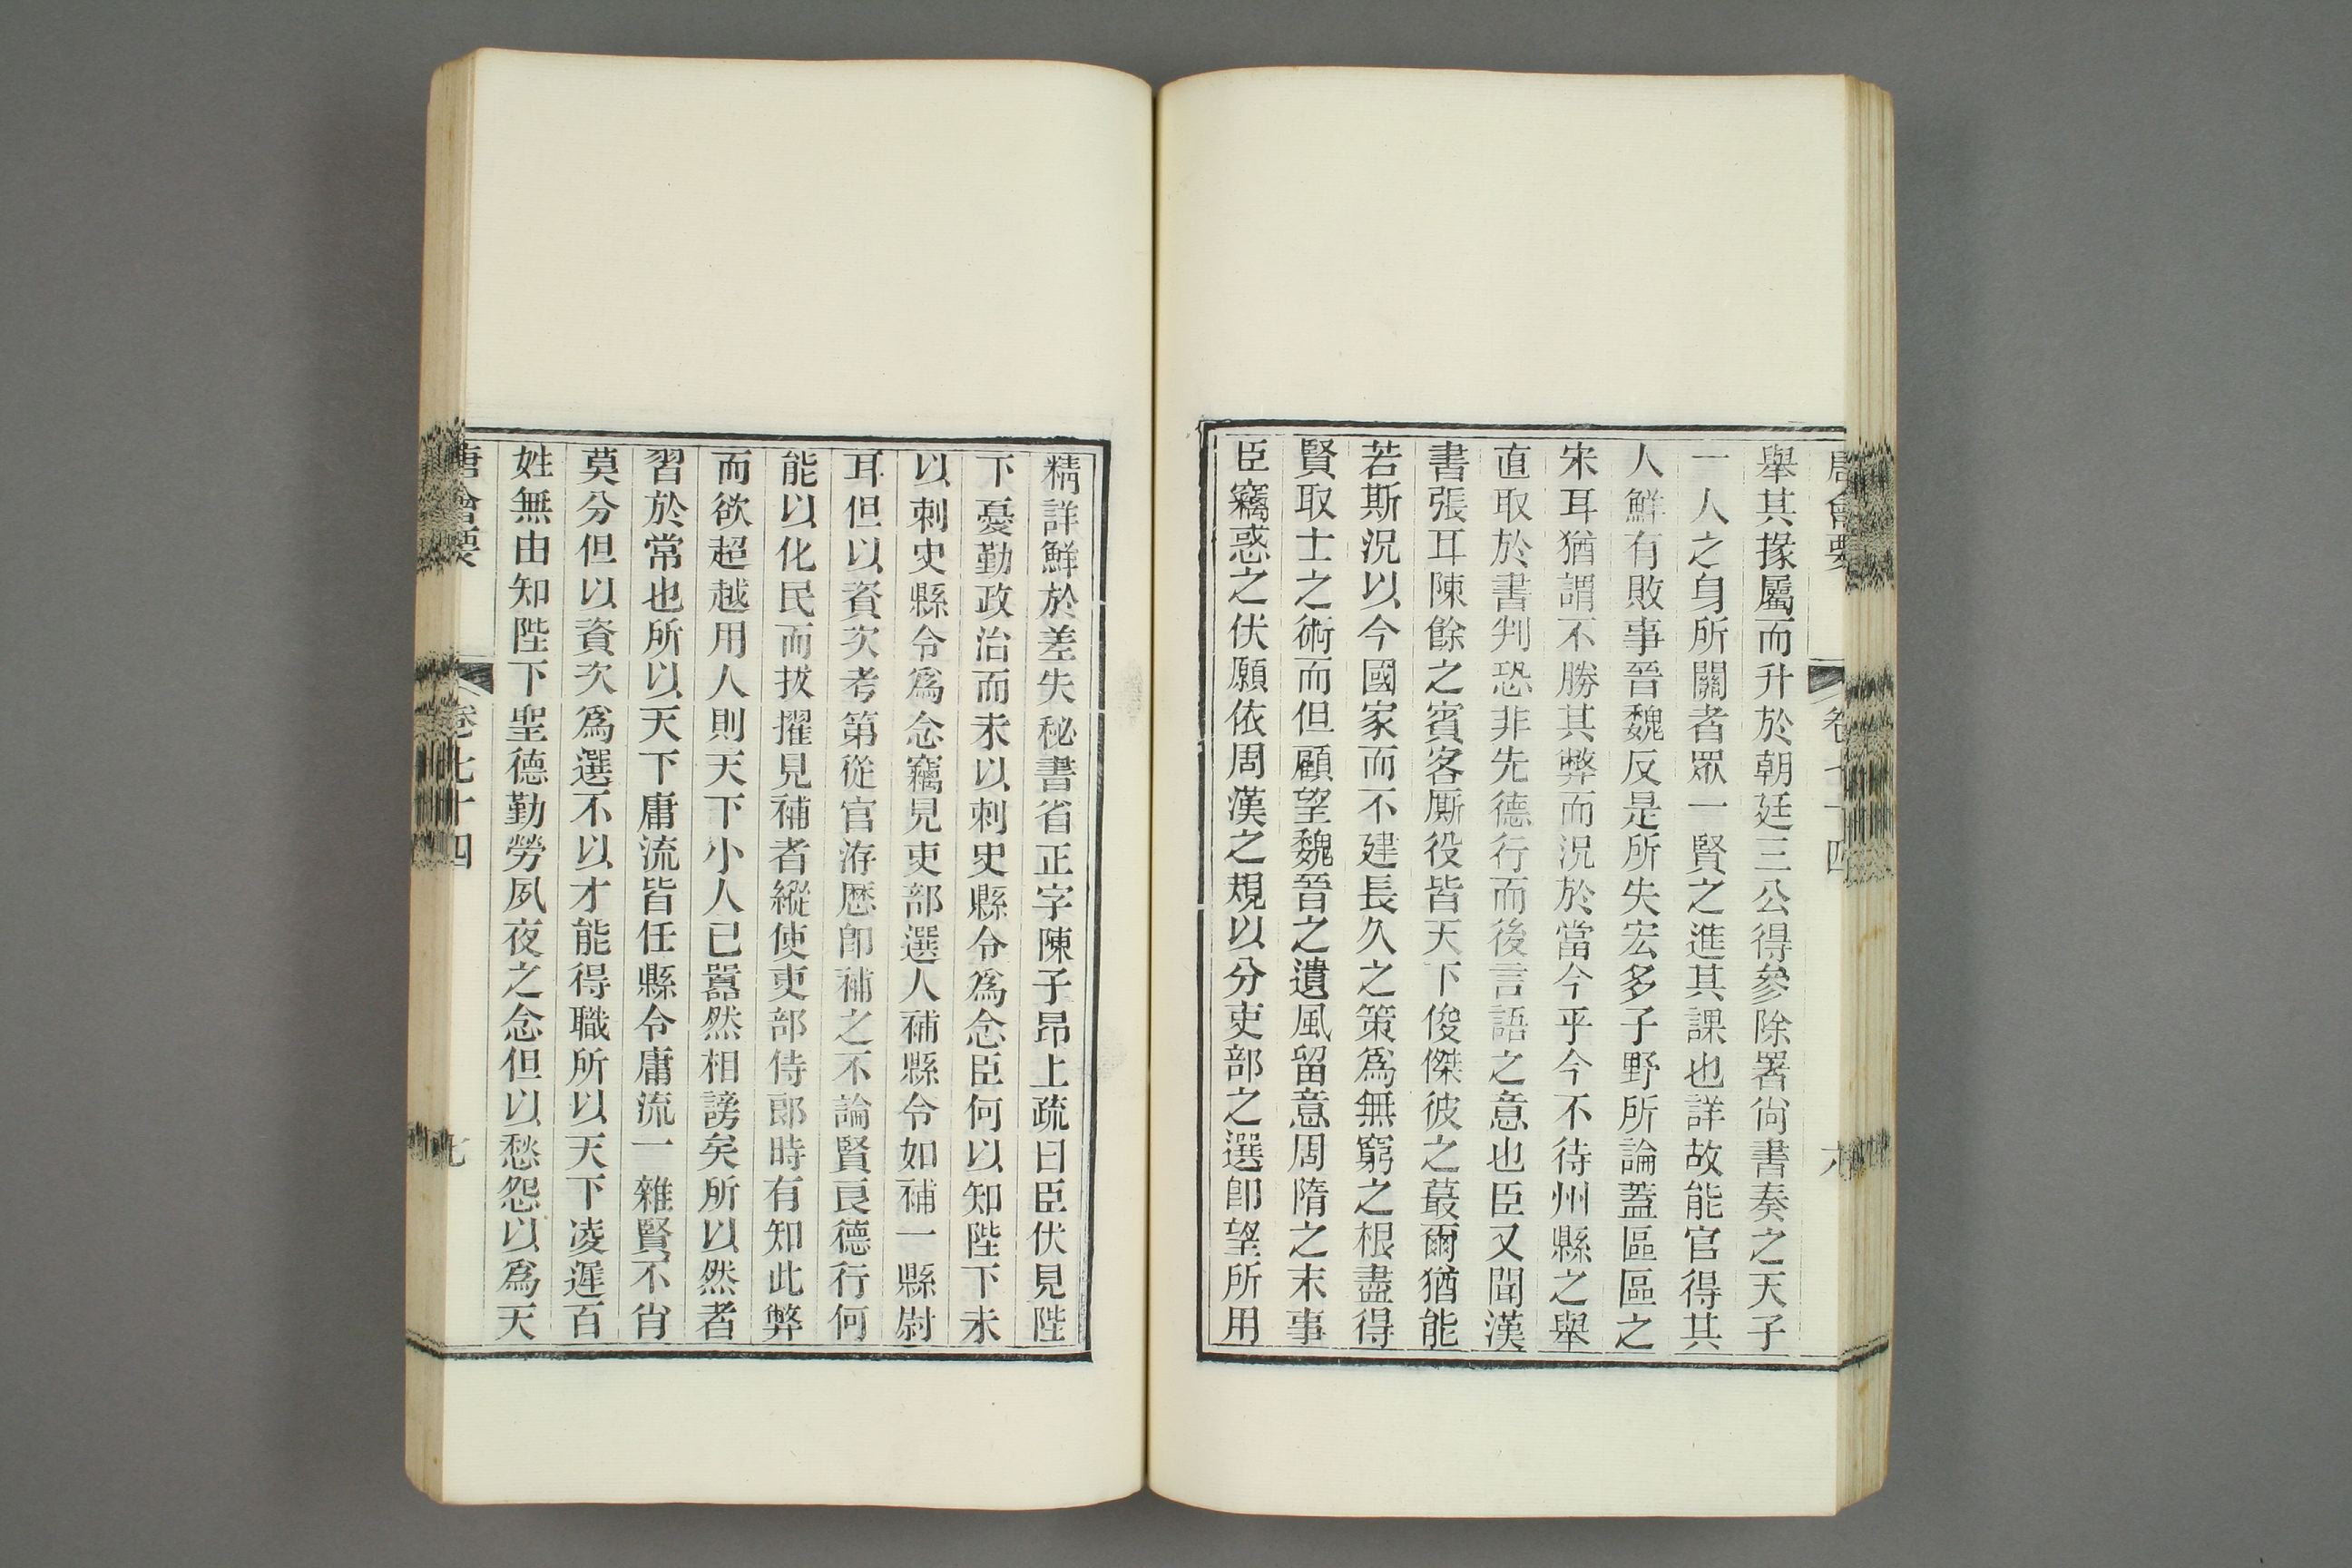 唐會要 卷七十四 六
舉其掾屬而升於朝廷三公得參除署尙書奏之天子
一人之身所關者眾一賢之進其課也詳故能官得其
人鮮有敗事晉魏反是所失宏多子野所論蓋區區之
宋耳猶謂不勝其弊而況於當今乎今不待州縣之舉
直取於書判恐非先德行而後言語之意也臣又聞漢
書張耳陳餘之賓客厮役皆天下俊傑彼之蕞爾猶能
若斯況以今國家而不建長久之策爲無窮之根盡得
賢取士之術而但顧望魏晉之遺風留意周隋之末事
臣竊惑之伏願依周漢之規以分吏部之選卽望所用
精詳鮮於差失秘書省正字陳子昂上疏曰臣伏見陛
下憂勤政治而未以刺史縣令爲念臣何以知陛下未
以刺史縣令爲念竊見吏部選人補縣令如補一縣尉
耳但以資次考第從官洊歷卽補之不論賢良德行何
能以化民而拔擢見補者縱使吏部侍郎時有知此弊
而欲超越用人則天下小人已囂然相謗矣所以然者
習於常也所以天下庸流皆任縣令庸流一雜賢不肖
莫分但以資次爲選不以才能得職所以天下凌遲百
姓無由知陛下聖德勤勞夙夜之念但以愁怨以爲天
唐會要 卷七十四 七